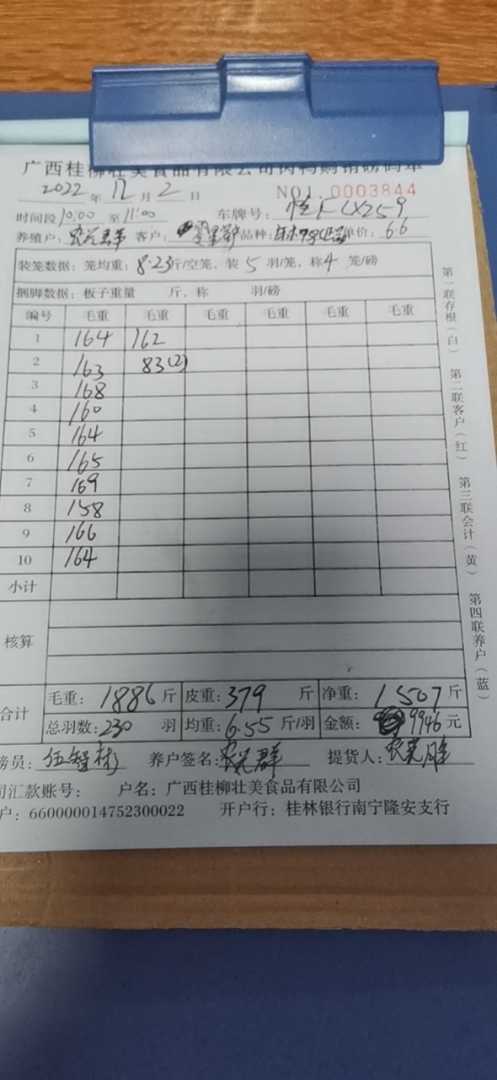 广西桂柳壮美食品有限公司肉鸭购销磅码单
2022 年 12 月 2 日 NO: 0003844
时间段 10:00 至 11:00 车牌号: LX259
养殖户: 客户: 品种: 单价: 6.6
装笼数据: 笼均重: 8.23 斤/空笼, 装 5 羽/笼, 称 4 笼/磅
捆脚数据: 板子重量 斤, 称 羽/磅
编号 毛重 毛重 毛重 毛重 毛重 毛重
1 164 162
2 163 83(2)
3 168
4 160
5 164
6 165
7 169
8 158
9 166
10 164
小计
核算
合计 毛重: 1886 斤 皮重: 379 斤 净重: 1507 斤
总羽数: 230 羽 均重: 6.55 斤/羽 金额: 9946 元
磅员: 养户签名: 农光群 提货人:
司汇款账号: 户名: 广西桂柳壮美食品有限公司
户: 660000014752300022 开户行: 桂林银行南宁隆安支行
第一联存根(白)
第二联客户(红)
第三联会计(黄)
第四联养户(蓝)